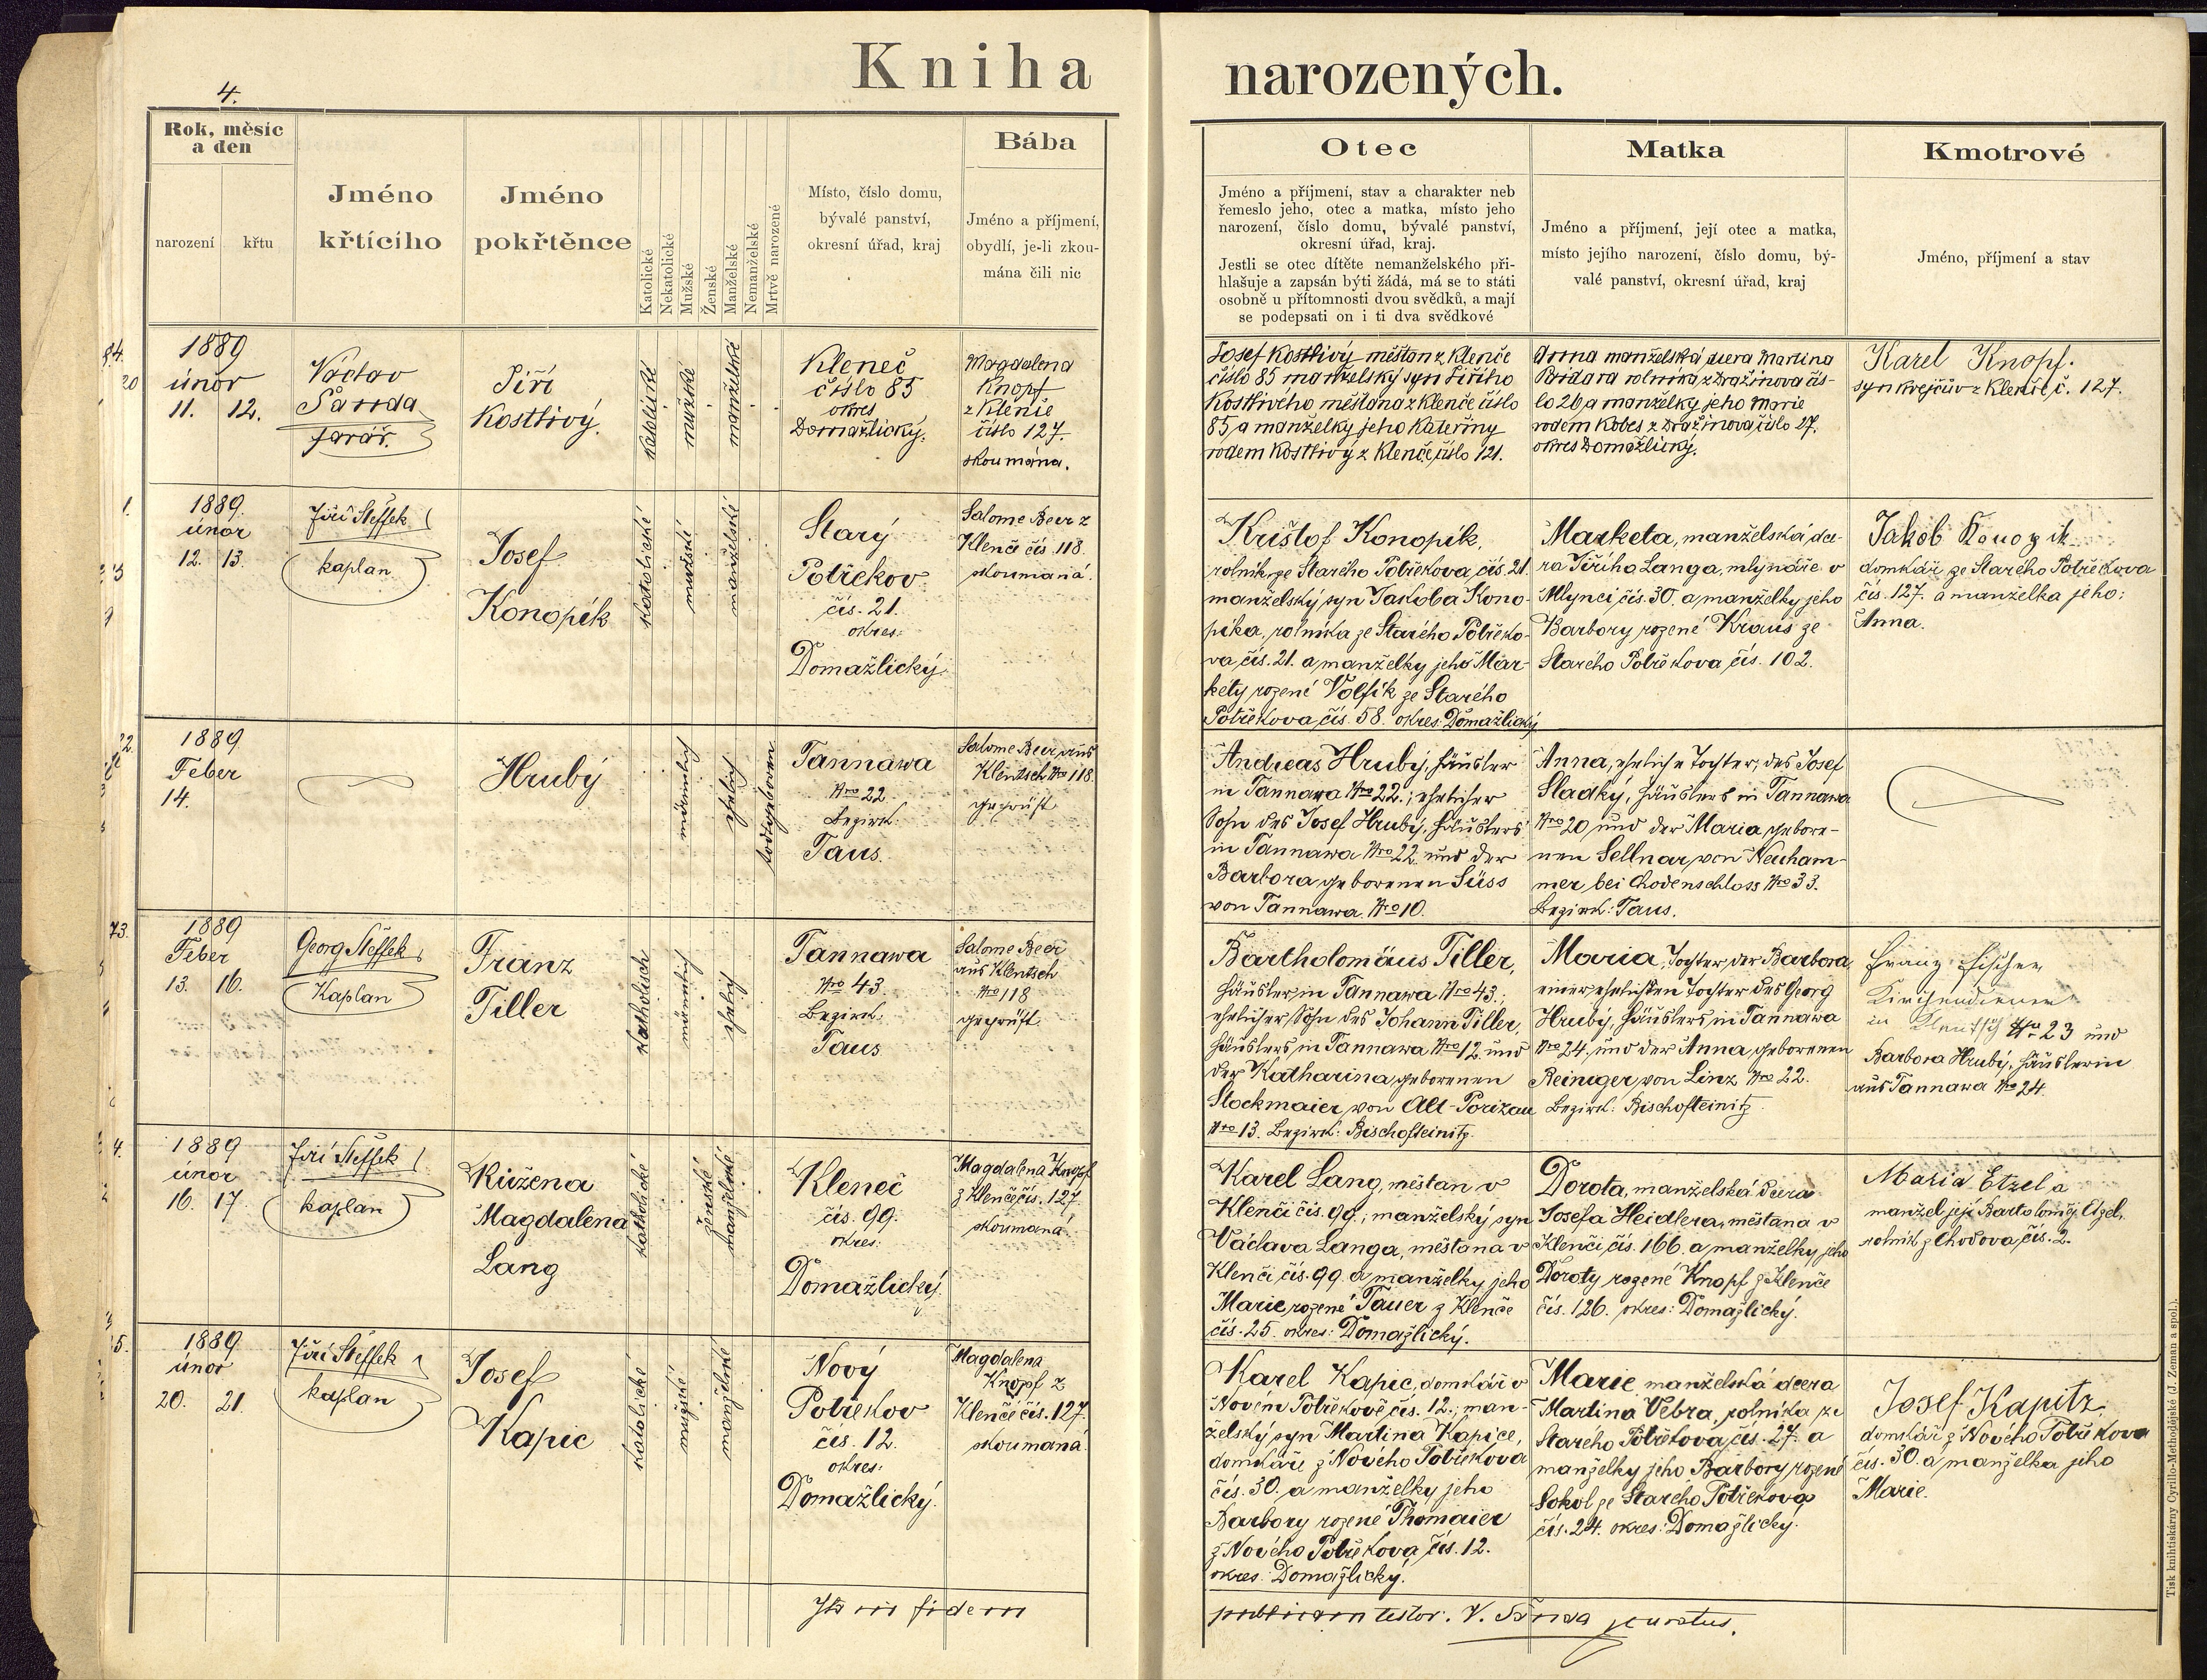 4.
Kniha narozených.
Rok, měsíc a den
narození
křtu
Jméno křtícího
Jméno pokřtěnce
Katolické
Nekatolické
Mužské
Ženské
Manželské
Nemanželské
Mrtvě narozené
Místo, číslo domu,
bývalé panství,
okresní úřad, kraj
Bába
Jméno a příjmení,
obydlí, je-li zkou-
mána čili nic
Otec
Jméno a příjmení, stav a charakter neb
řemeslo jeho, otec a matka, místo jeho
narození, číslo domu, bývalé panství,
okresní úřad, kraj.
Jestli se otec dítěte nemanželského při-
hlašuje a zapsán býti žádá, má se to státi
osobně u přítomnosti dvou svědků, a mají
se podepsati on i ti dva svědkové
Matka
Jméno a příjmení, její otec a matka,
místo jejího narození, číslo domu, bý-
valé panství, okresní úřad, kraj
Kmotrové
Jméno, příjmení a stav
1889
únor
11. 12.
Václav
Šanda
farář.
Jiří
Kostlivý.
katolické
mužské
manželské
Kleneč
číslo 85
okres
Domažlický.
Magdalena
Knopf
z Klenče
číslo 127.
skoumána.
Josef Kostlivý měštan z Klenče
číslo 85 manželský syn Jiřího
Kostlivého měštana z Klenče číslo
85 a manželky jeho Kateřiny
rodem Kostlivý z Klenče, číslo 121.
Anna manželská dcera Martina
rolníka z Dražinova čís-
lo 26 a manželky jeho Marie
rodem Kobes z Dražinova, číslo 27.
okres Domažlický.
Karel Knopf.
syn krejčův z Klenče č. 127.
1889.
únor
12. 13.
Jiří Steffek
kaplan
Josef
Konopík
katolické
mužské
manželské
Starý
Potřekov
čís. 21.
okres:
Domažlický.
Salome Beer z
Klenče čís. 118.
skoumaná.
Krištof Konopík,
rolník ze Starého Potřekova, čís. 21.
manželský syn Jakoba Kono-
píka, rolníka ze Starého Potřeko-
va, čís. 21. a manželky jeho Mar-
kety rozené Volfík ze Starého
Potřekova, čís. 58. okres: Domažlický
Marketa, manželská dce-
ra Jiřího Langa, mlynáře v
Mlynci čís. 30. a manželky jeho
Barbory rozené Kraus ze
Starého Potřekova, čís. 102.
Jakob Konopik
domkář ze Starého Potřekova
čís. 127. a manželka jeho:
Anna.
1889.
Feber
14.
Hrubý
männlich
ehelich
todtgeboren
Tannawa
Nro 22
Bezirk:
Taus.
Salome Beer, aus
Klentsch Nro 118.
geprüft
Andreas Hrubý, Häusler
in Tannawa Nro 22.; ehelicher
Sohn des Josef Hrubý, Häuslers
in Tannawa Nro 22. und der
Barbora, geborenen Süss
von Tannawa. Nro 10.
Anna, eheliche Tochter, des Josef
Sladký, Häuslers in Tannawa
Nro 20 und der Maria, gebore-
nen Sellnar, von Neuham-
mer bei Chodenschloss Nro 33.
Bezirk: Taus.
1889
Feber
13. 16.
Georg Steffek
Kaplan
Franz
Tiller
katholisch
männlich
ehelich
Tannawa
Nro 43.
Bezirk:
Taus
Salome Beer
aus Klentsch
Nro 118
geprüft.
Bartholomäus Tiller,
Häusler, in Tannawa Nro 43.;
ehelicher Sohn des Johann Tiller,
Häuslers, in Tannawa Nro 12. und
der Katharina, geborenen
Stockmaier, von Alt-Porizau
Nro 13. Bezirk: Bischofteinitz.
Maria, Tochter der Barbora,
einer ehelichen Tochter des Georg
Hrubý, Häuslers in Tannawa
Nro 24. und der Anna, geborenen
Reiniger, von Linz Nro 22.
Bezirk: Bischofteinitz.
Franz Fischer
Kirchendiener
in Klentsch Nr 23 und
Barbora Hrubý, Häuslerin
aus Tannawa Nro 24.
1889
únor
16. 17.
Jiří Steffek
kaplan
Růžena
Magdaléna
Lang
katholické
ženské
manželské
Kleneč
čís. 99.
okres:
Domažlický.
Magdalena Knopf
z Klenče, čís. 127.
skoumaná.
Karel Lang, měštan v
Klenči čís. 99.; manželský syn
Václava Langa, měštana v
Klenči čís. 99. a manželky jeho
Marie rozené Tauer z Klenče
čís. 25. okres: Domažlický.
Dorota, manželská dcera
Josefa Heidlera, měštana v
Klenči, čís. 166. a manželky jeho
Doroty rozené Knopf z Klenče
čís. 126. okres: Domažlický.
Maria Etzel a
manžel její Bartoloměj Etzel,
rolník z Chodova, čís. 2.
1889.
únor
20. 21.
Jiří Steffek
kaplan
Josef
Kapic
katolické
mužské
manželské
Nový
Potřekov
čís. 12.
okres:
Domažlický.
Magdalena
Knopf z
Klenče čís. 127.
skoumaná.
Karel Kapic, domkář v
Novém Potřekově čís. 12.; man-
želský syn Martina Kapice,
domkáře z Nového Potřekova
čís. 30. a manželky jeho
Barbory rozené Thomaier
z Nového Potřekova, čís. 12.
okres: Domažlický.
Marie, manželská dcera
Martina Vebra, rolníka ze
Starého Potřekova, čís. 27. a
manželky jeho Barbory, rozené
Sokol ze Starého Potřekova
čís. 24. okres: Domažlický.
Josef Kapitz,
domkář z Nového Potřekova
čís. 30. a manželka jeho
Marie.
Ita in fidem publicam testor. V. Šanda, curatus.
Tisk knihtiskárny Cyrillo-Methodějské (J. Zeman a spol.).